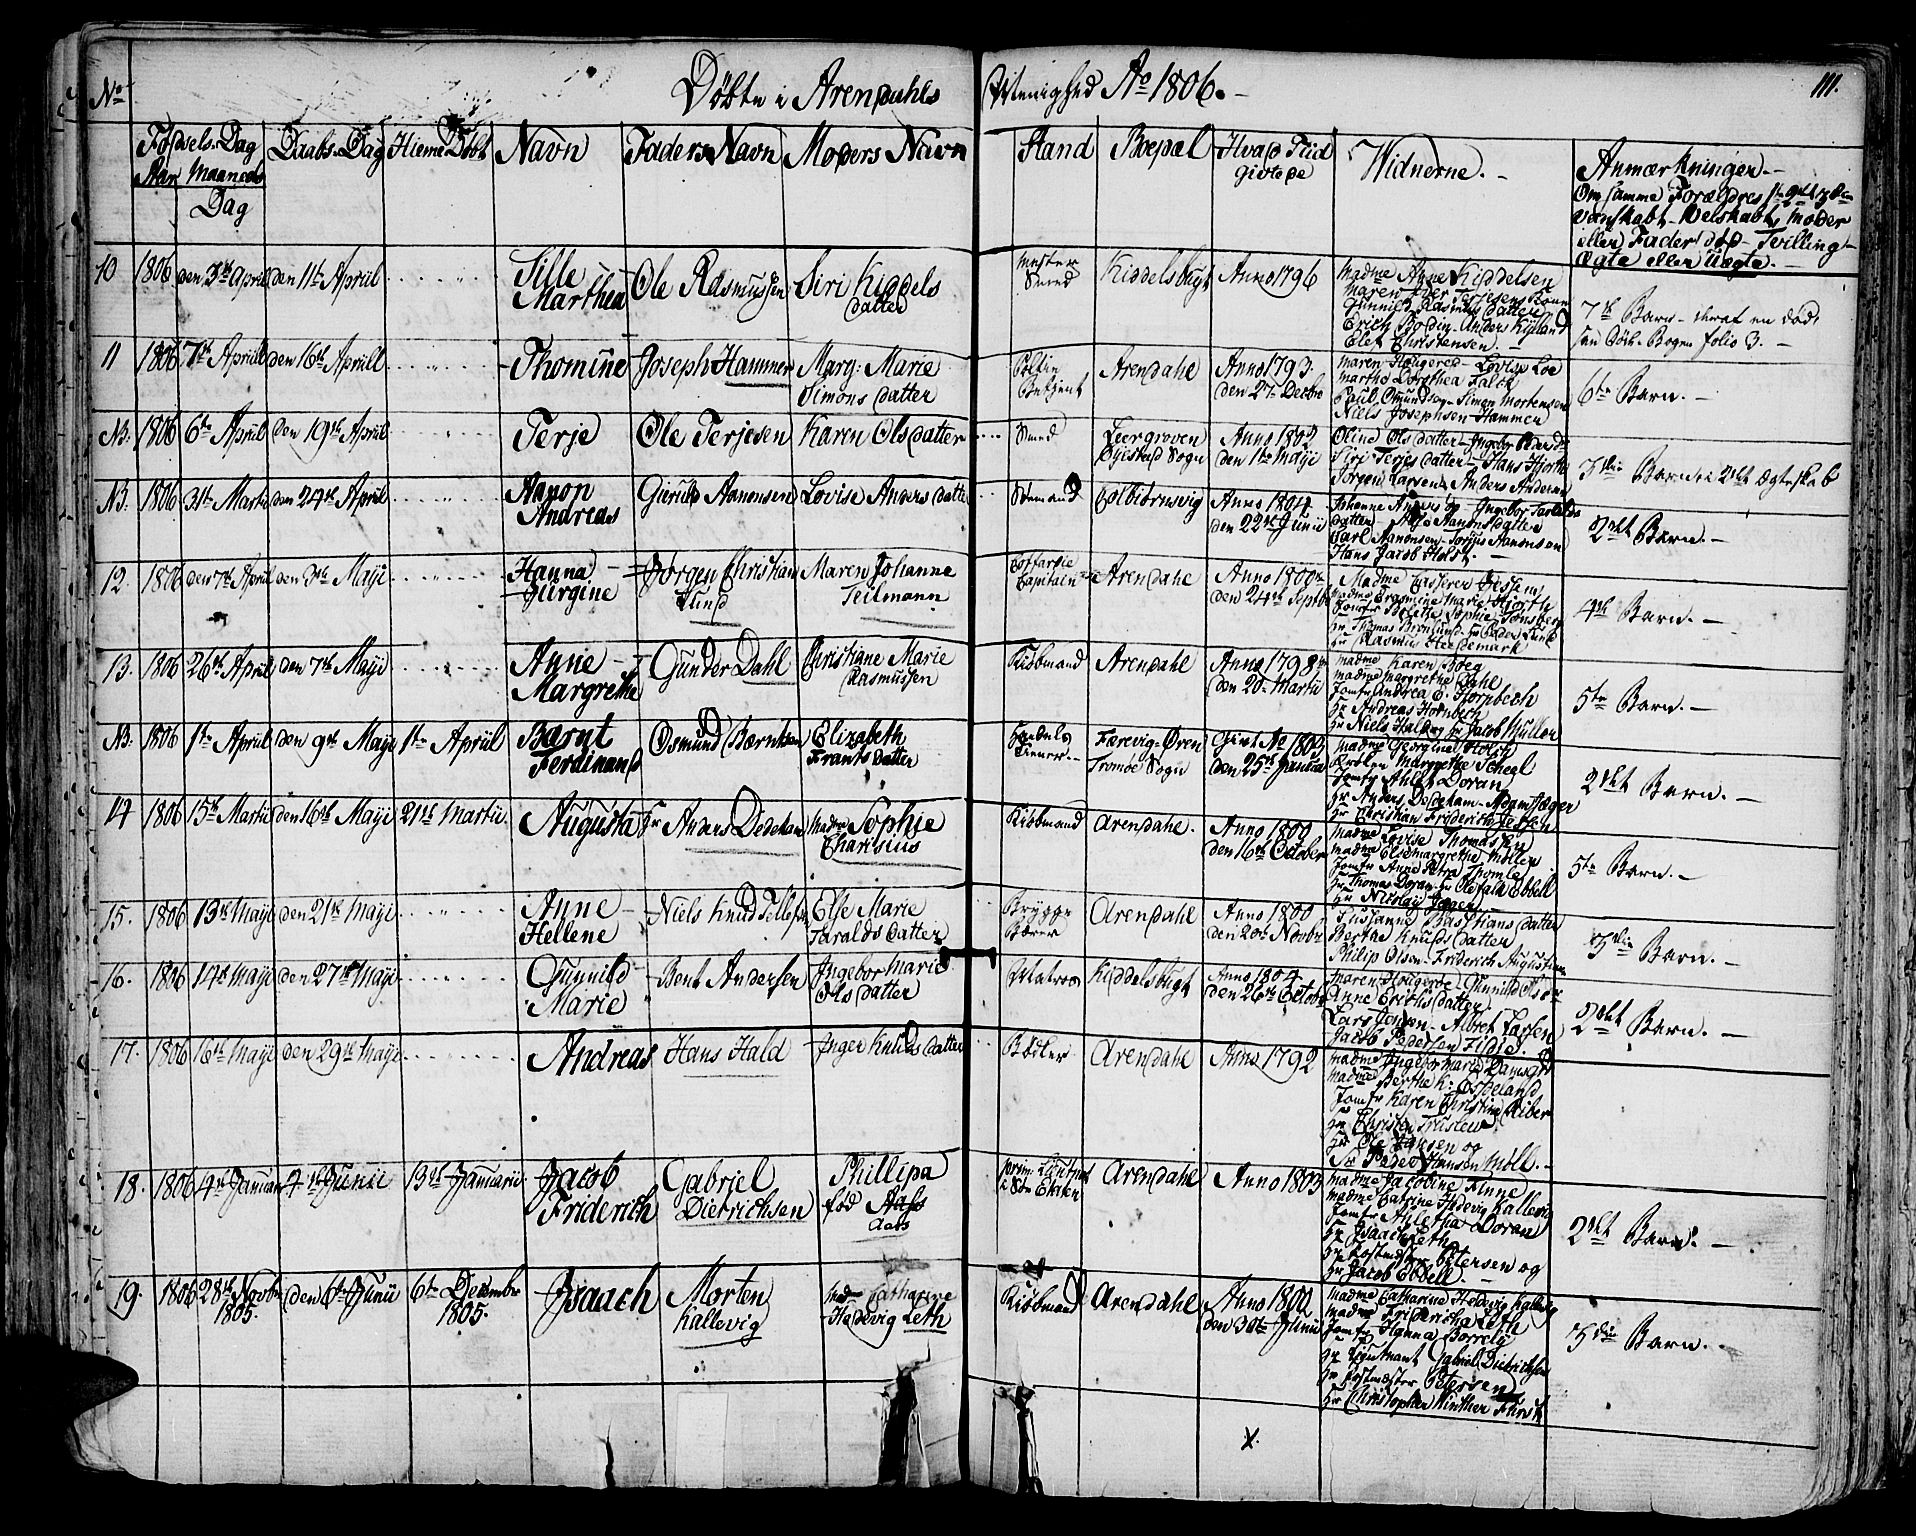 No
Döbte i Arendahls Menighed Ao 1806.
111.
Fødsels-Dag
Aar Maaned
Dag
Daabs-Dag
Hieme Döbt
Navn
Faders Navn
Moders Navn
Stand
Boepæl
Hvad Tiid
givtede
Widnerne.
Anmærkninger.
Om samme Forældres 1te 2det 3die
eller Fader død - Tvilling -
Ægte eller Uægte.
10
1806
den 3de April
den 11te Apriil
Sille
Marthea
Ole Rasmussen
Siri Kiddels
datter
Mester
Smed
Kiddelsbugt
Anno 1796
Madme Anne Kiddelsen
Gunnild Rasmus datter
Erich Bodin - Anders Kisland
Elef Christensen.
7de Barn - deraf en død,
folio 3.
11
1806
7de Apriil
den 16de Apriil
Thomine
Joseph Hammer
Marg: Marie
Simons datter
Betjent
Arendahl
Anno 1793
den 27. Decbr
Maren Hougered - Lovise Loe
Martha Dorothea Falck
Simon Mortensen
Niels Josephsen Hammer
6te Barn.
NB.
1806
6te April
den 19de April
Terje
Ole Terjesen
Karen Ols datter
Smed
Øjestad Sogn
Anno 1802
den 1te Maji
Oline Ols datter - Ingebor
Siri Terjes datter - Hans Hjorth
Jörgen Larsen, Anders Andersen
3die Barn i 2det Ægteskab
NB.
1806
31te Martii
den 24de April
Aanon
Andreas
Gierulf Aanonsen
Lovise Anders datter
Sømand
Colbiörnsvig
Anno 1804
den 22de Junii
Johanne Anders og Ingebor
datter Aanonsdatter
Carl Aanonsen - Aanonsen
Hans Jacob Holst.
2det Barn.
12.
1806
den 7de April
den 3de Maji
Hanna
Jürgine
Jörgen Christian
Lund
Maren Johanne
Teilmann
Coffardie
Capitain
Arendahl
Anno 1800
den 24de Septbr
Madme
Madme Erasmine Marie Hjorth
Sophie Tönsberg
Hr Thomas
Hr Rasmus Heedemark
4de Barn.
13.
1806
26de April
den 7de Maji
Anne
Margrethe
Gunder Dahl
Christiane Marie
Rasmussen
Kiöbmand
Arendahl
Anno 1798
den 20. Martii
Madme Karen Boeg
Madme Margrethe Dahl
Jomfr Andrea C. Hornbech
Hr Andreas Hornbech
Hr Niels Hald og Hr Jacob Müller
5te Barn.
NB.
1806
1te Apriil
den 9de Maji
1te Apriil
Bærnt
Ferdinand
Osmund Bærntsen
Elizabeth
Frants datter
Færevig-Øren
Tromøe Sogn
Givt Ao 1803
den 25de
Madme Georgine Holch
Margrethe Schegl
Doran
Hr Anders Dedekam - Adam Jæger
Hr Christian Friderich Jessen
2det Barn.
14
1806
15de Martii
den 16de Maji
21de Martii
Augusta
Hr Anders Dedekam
Madme Sophie
Charisius
Kiöbmand
Arendahl.
Anno 1800
den 16de October
Madme Lovise Thomassen
Madme Else Margrethe Möller
Jomfr Anne Petra Thomle
Hr Thomas Doran - Hr Ole Falk Ebbell
Hr Nicolay
5te Barn.
15.
1806
13de Maji
den 21de Maji
Anne
Hellene
Niels Knud Tellefsen
Else Marie
Taralds datter
Brygge
Bærer
Arendahl
Anno 1800
den 20de Novbr
Susanne Bastians datter
Berthe Knuds datter
Philip Olsen - Friderich Augustinus
3die Barn.
16.
1806
14de Maji
den 27de Maji
Gunnild
Marie
Bent Andersen
Ingebor Marie
Ols datter
Matros
Kiddelsbugt
Anno 1804
den 26de October
Maren Hougerød - Gunnild Ols
Anne datter
Lars Jensen - Albret Larsen
Jacob Pedersen
2det Barn.
17.
1806
16de Maji
den 29de Maji
Andreas
Hans Hald
Inger Knuds datter
Bödker
Arendahl
Anno 1792
Madme Ingebor Marie
Madme Berthe K. Espeland
Jomfr Karen Christine Riber
Hr Christen
Hr Ole Hansen og
Hr Peder Hansen Moll.
18.
1806
4de Januarii
4de Junii
13de Januarii
Jacob
Friderich
Gabriel
Dietrichsen
Phillipa
fød Aass
Aas
Arendahl
Anno 1803
Madme Jacobine Finne
Madme Catrine Hedevig Kallevig
Jomfr Ahletha Doran
Hr Isaach Leth
Hr Postmester Petersen og
Hr Jacob Ebbell.
2det Barn.
19.
1806
28de Novbr
1805.
den 6te Junii
6te December
1805.
Isaach
Morten
Kallevig
Catharine
Hedevig Leth
Kiöbmand
Arendahl
Anno 1800
den 30te Junii
Madme Catharine Hedevig Kallevig
Madme Fridericha Leth
Jomfr Hanna Borrely
Hr Lieutnant Gabriel Dietrichsen
Hr Postmester Petersen
Hr Christopher Winther Fürst
3die Barn.
X.